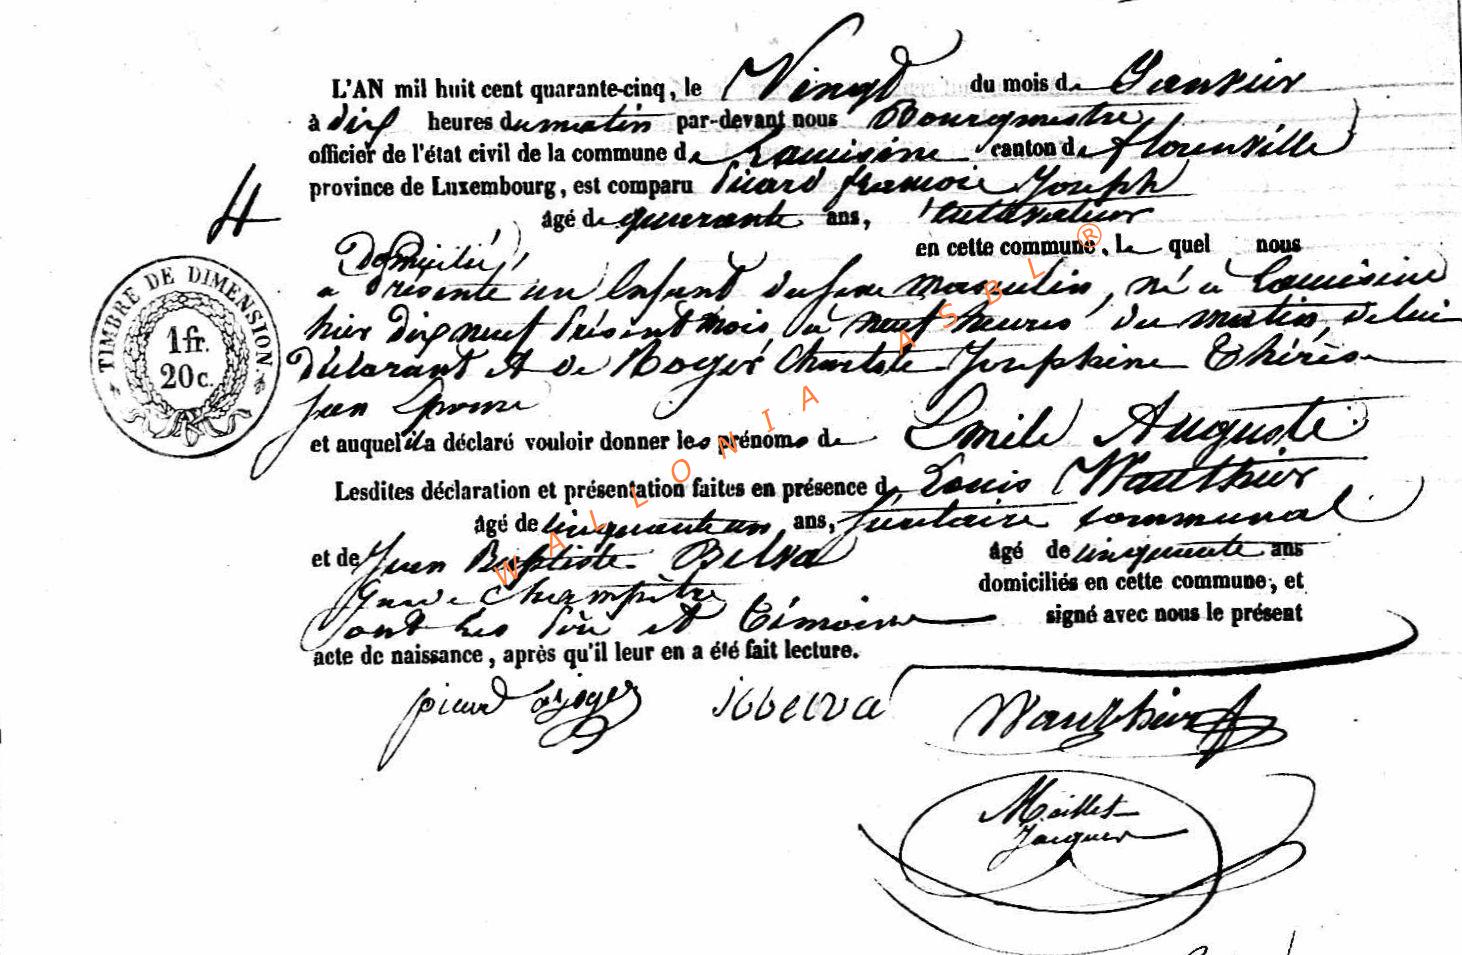 L'AN mil huit cent quarante-cinq, le Vingt du mois de Janvier
à dix heures du matin par-devant nous Bourgmestre
officier de l'état civil de la commune de Lacuisine canton de florenville
4
province de Luxembourg, est comparu Picard françois Joseph
âgé de quarante ans, Cultivateur
Domicilié en cette commune, le quel nous
a présenté un Enfant du sexe masculin, né à Lacuisine
hier dix neuf présent mois à neuf heures du matin, de lui
déclarant et de Roger Charlote Josephine Thérèse
son Epouse
et auquel il a déclaré vouloir donner les prénoms de Emile Auguste
Lesdites déclaration et présentation faites en présence de Louis Wauthier
âgé de cinquante un ans, Secrétaire communal
et de Jean Baptiste Belva âgé de cinquante ans
Garde Champêtre domiciliés en cette commune, et
ont les Père et Témoins signé avec nous le présent
acte de naissance, après qu'il leur en a été fait lecture.
TIMBRE DE DIMENSION.
1 fr.
20 c.
WALLONIA ASBL ®
picard jbbelva Wauthier
Maillet
Jacques